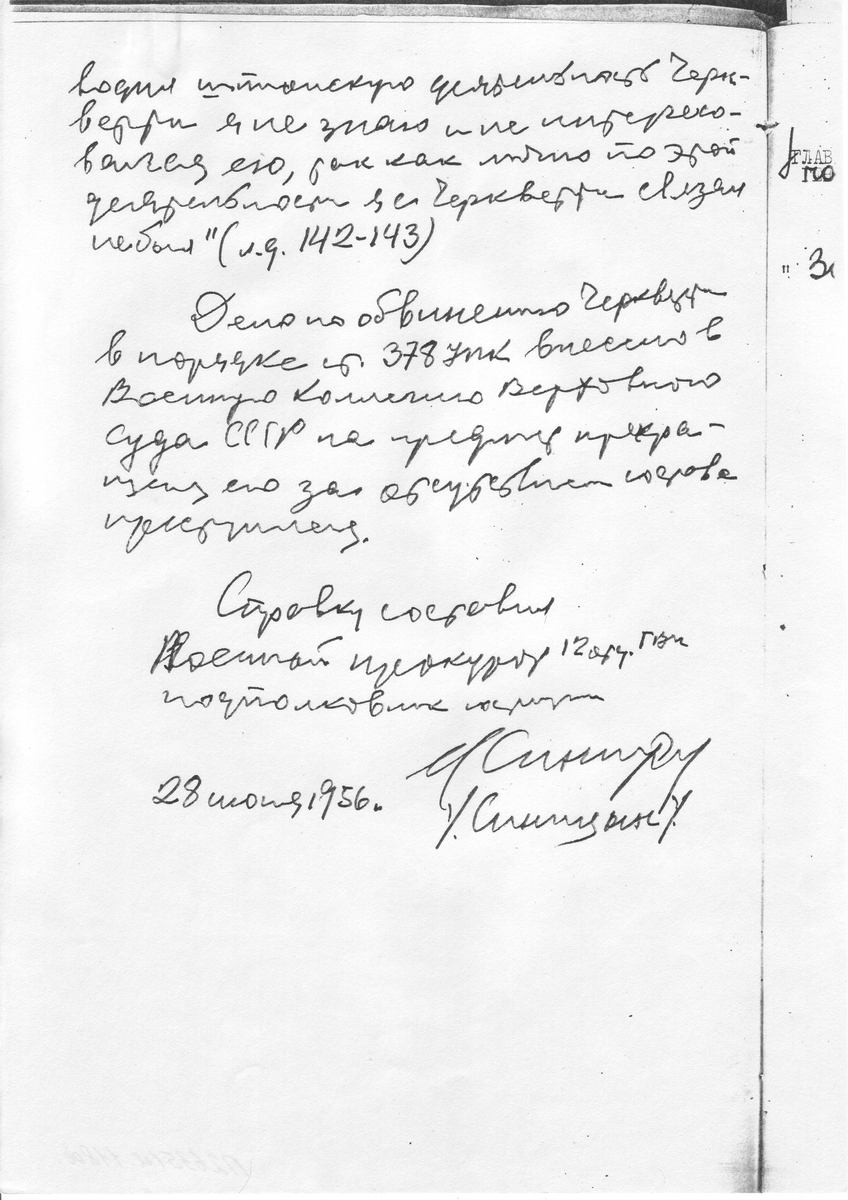 водил шпионскую деятельность Черк-
верти я не знаю и не интересо-
вался ею, так как лично по этой
деятельности я с Черкверти связан
не был" (л.д. 142-143)
Дело по обвинению Черкверти
в порядке ст. 378 УПК внесено в
Военную Коллегию Верховного
суда СССР на предмет прекра-
щения его за отсутствием состава
преступления.
Справку составил
Военный прокурор 12 отд. ГВП
подполковник юстиции
Синицын
28 июня 1956г.
/.Синицын/.
ГЛАВ
ПО
" 31